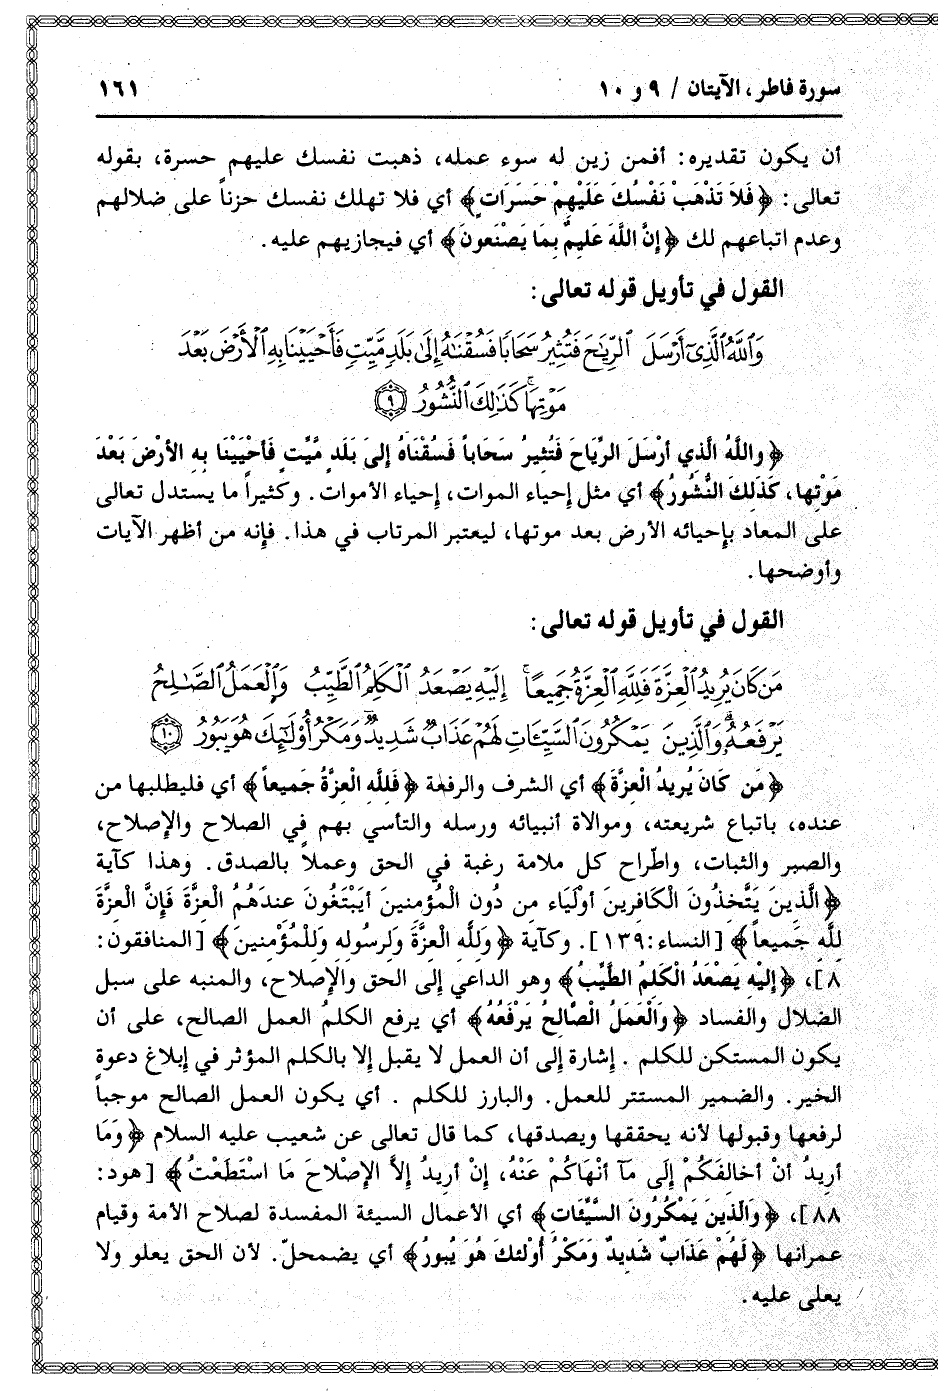 سورة فاطر، الآيتان / ٩ و ١٠
١٦١
أن يكون تقديره: أفمن زين له سوء عمله، ذهبت نفسك عليهم حسرة، بقوله
تعالى: ﴿فَلاَ تَذْهَبْ نَفْسُكَ عَلَيْهِمْ حَسَرَاتٍ﴾ أي فلا تهلك نفسك حزناً على ضلالهم
وعدم اتباعهم لك ﴿إِنَّ اللَّهَ عَلِيمٌ بِمَا يَصْنَعونَ﴾ أي فيجازيهم عليه.
القول في تأويل قوله تعالى:
وَٱللَّهُ ٱلَّذِىٓ أَرْسَلَ ٱلرِّيَـٰحَ فَتُثِيرُ سَحَابًا فَسُقْنَـٰهُ إِلَىٰ بَلَدٍ مَّيِّتٍ فَأَحْيَيْنَا بِهِ ٱلْأَرْضَ بَعْدَ
مَوْتِهَا ۚ كَذَٰلِكَ ٱلنُّشُورُ ٩
﴿واللَّهُ الَّذِي أرْسَلَ الرِّيَاحَ فَتُثِيرُ سَحَاباً فَسُقْنَاهُ إلىَ بَلَدٍ مَّيِّتٍ فَأحْيَيْنَا بِهِ الأرْضَ بَعْدَ
مَوْتِها، كَذَلِكَ النُّشُورُ﴾ أي مثل إحياء الموات، إحياء الأموات. وكثيراً ما يستدل تعالى
على المعاد بإحيائه الأرض بعد موتها، ليعتبر المرتاب في هذا. فإنه من أظهر الآيات
وأوضحها.
القول في تأويل قوله تعالى:
مَن كَانَ يُرِيدُ ٱلْعِزَّةَ فَلِلَّهِ ٱلْعِزَّةُ جَمِيعًا ۚ إِلَيْهِ يَصْعَدُ ٱلْكَلِمُ ٱلطَّيِّبُ وَٱلْعَمَلُ ٱلصَّـٰلِحُ
يَرْفَعُهُۥ ۚ وَٱلَّذِينَ يَمْكُرُونَ ٱلسَّيِّـَٔاتِ لَهُمْ عَذَابٌ شَدِيدٌ ۖ وَمَكْرُ أُوْلَـٰٓئِكَ هُوَ يَبُورُ ١٠
﴿مَن كَانَ يُرِيدُ الْعِزَّةَ﴾ أي الشرف والرفعة ﴿فَلِلَّهِ الْعِزَّةُ جَمِيعاً﴾ أي فليطلبها من
عنده، باتباع شريعته، وموالاة أنبيائه ورسله والتأسي بهم في الصلاح والإصلاح،
والصبر والثبات، واطّراح كل ملامة رغبة في الحق وعملاً بالصدق. وهذا كآية
﴿الَّذِينَ يَتَّخِذُونَ الْكَافِرِينَ أوْلِيَاء مِن دُونِ الْمُؤمِنينَ أيَبْتَغُونَ عِندَهُمُ الْعِزَّةَ فَإنَّ الْعِزَّةَ
لِلَّهِ جَمِيعاً﴾ [النساء:١٣٩]. وكآية ﴿وَلِلَّهِ الْعِزَّةَ وَلِرسُولِهِ وَلِلْمُؤْمِنينَ﴾ [المنافقون:
٨]، ﴿إلَيْهِ يَصْعَدُ الْكَلِمُ الطَّيِّبُ﴾ وهو الداعي إلى الحق والإصلاح، والمنبه على سبل
الضلال والفساد ﴿وَالْعَمَلُ الْصَّالِحُ يَرْفَعُهُ﴾ أي يرفع الكلمُ العمل الصالح، على أن
يكون المستكن للكلم . إشارة إلى أن العمل لا يقبل إلا بالكلم المؤثر في إبلاغ دعوة
الخير. والضمير المستتر للعمل. والبارز للكلم . أي يكون العمل الصالح موجباً
لرفعها وقبولها لأنه يحققها ويصدقها، كما قال تعالى عن شعيب عليه السلام ﴿وَمَا
أرِيدُ أنْ أخَالِفَكُمْ إلَى مَآ أنْهَاكُمْ عَنْهُ، إنْ أرِيدُ إلاَّ الإصْلاَحَ مَا اسْتَطَعْتُ﴾ [هود:
٨٨]، ﴿وَالَّذِينَ يَمْكُرُونَ السَّيِّئَاتِ﴾ أي الأعمال السيئة المفسدة لصلاح الأمة وقيام
عمرانها ﴿لَهُمْ عَذَابٌ شَدِيدٌ وَمَكْرُ أُوْلئكَ هُوَ يَبُورُ﴾ أي يضمحلّ. لأن الحق يعلو ولا
يعلى عليه.